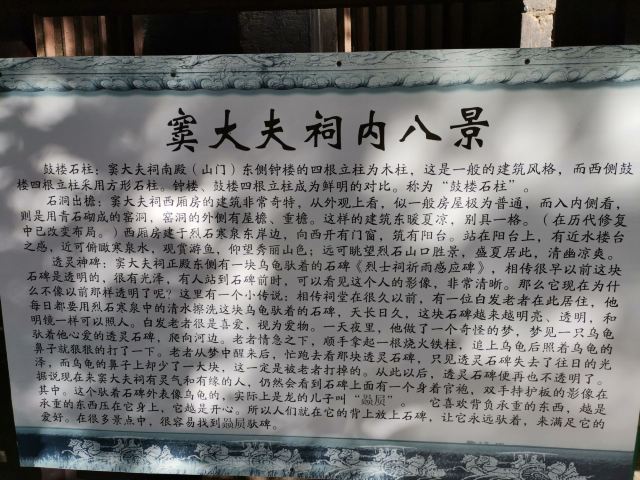 窦大夫祠内八景
鼓楼石柱：窦大夫祠南殿（山门）东侧钟楼的四根立柱为木柱，这是一般的建筑风格，而西侧鼓
楼四根立柱采用方形石柱。钟楼、鼓楼四根立柱成为鲜明的对比。称为“鼓楼石柱”。
石洞出檐：窦大夫祠西厢房的建筑非常奇特，从外观上看，似一般房屋极为普通，而入内侧看，
则是用青石砌成的窑洞，窑洞的外侧有屋檐、重檐。这样的建筑东暖夏凉，别具一格。（在历代修复
中已改变布局。）西厢房建于烈石寒泉东岸边，向西开有门窗，筑有阳台。站在阳台上，有近水楼台
之感，近可俯瞰寒泉水，观赏游鱼，仰望秀丽山色；远可眺望烈石山口胜景，盛夏居此，清幽凉爽。
透灵神碑：窦大夫祠正殿东侧有一块乌龟驮着的石碑《烈士祠祈雨感应碑》，相传很早以前这块
石碑是透明的，很有光泽，有人站到石碑前时，可以看见这个人的影像，非常清晰。那么它现在为什
么不像以前那样透明了呢？这里有一个小传说：相传祠堂在很久以前，有一位白发老者在此居住，他
每日都要用烈石寒泉中的清水擦洗这块乌龟驮着的石碑，天长日久，这块石碑越来越明亮、透明，和
明镜一样可以照人。白发老者很是喜爱，视为爱物。一天夜里，他做了一个奇怪的梦，梦见一只乌龟
驮着他心爱的透灵石碑，爬向河边。老者情急之下，顺手拿起一根烧火铁柱，追上乌龟后照着乌龟的
鼻子就狠狠的打了一下。老者从梦中醒来后，忙跑去看那块透灵石碑，只见透灵石碑失去了往日的光
泽，而乌龟的鼻子上却少了一大块，这一定是被老者打掉的。从此以后，透灵石碑便再也不透明了。
据说现在来窦大夫祠有灵气和有缘的人，仍然会看到石碑上面有一个身着官袍，双手持护板的影像在
其中。这个驮着石碑外表像乌龟的，实际上是龙的儿子叫“赑屃”。它喜欢背负承重的东西，越是
承重的东西压在它身上，它越是开心。所以人们就在它的背上放上石碑，让它永远驮着，来满足它的
爱好。在很多景点中，很容易找到赑屃驮碑。